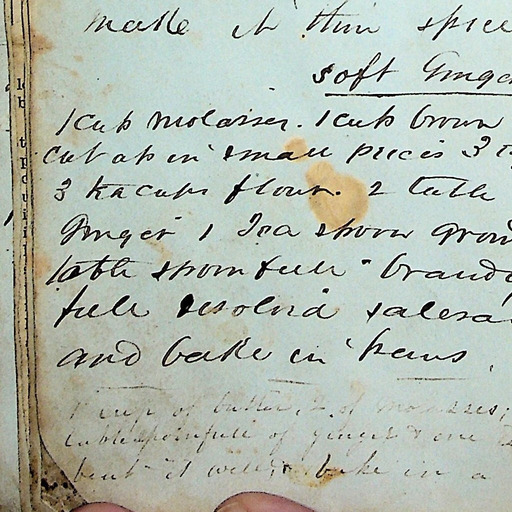 make it thin spice
soft Ginge
1 cup molasses. 1 cup brown
cut up in small pieces 3
3 teacups flour. 2 table
Ginger 1 Tea spoon grou
table spoonfull brandy
full desolvd salera
and bake in pans
1 cup of butter, 2 of molasses,
tablespoonfull of ginger & one
beat it well, bake in a